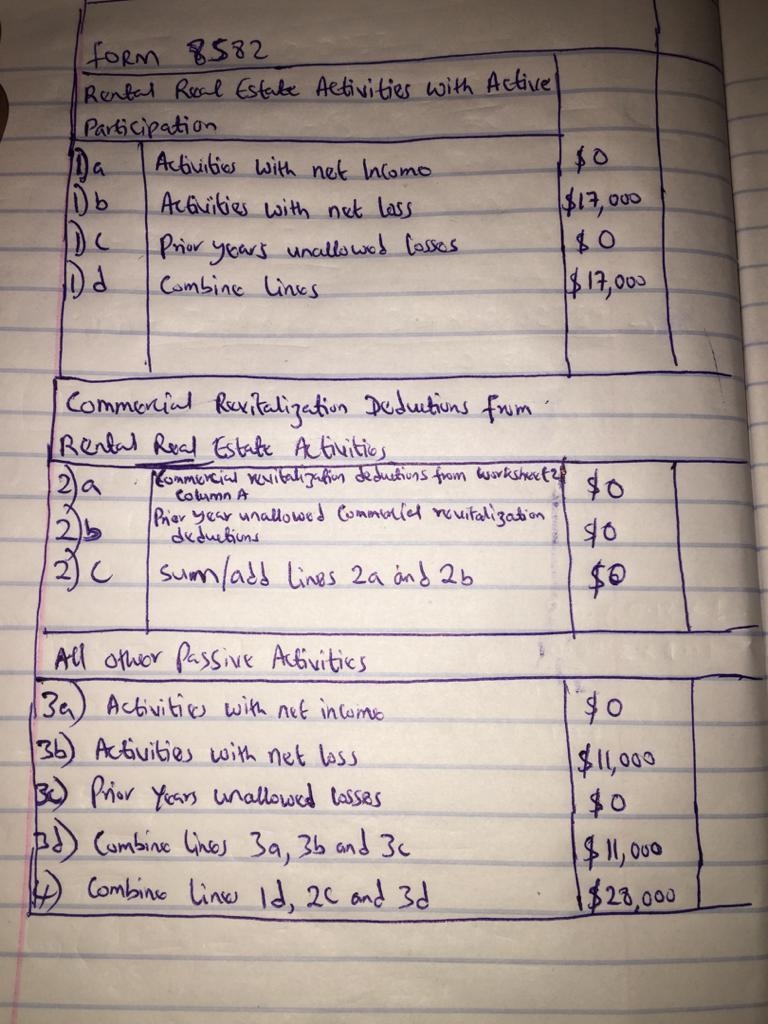 Form 8582
Rental Real Estate Activities with Active
Participation
1)a Activities with net Income $0
1)b Activities with net loss $17,000
1)c Prior years unallowed losses $0
1)d Combine lines $17,000
Commercial Revitalization Deductions from
Rental Real Estate Activities
2)a Commercial revitalization deductions from worksheet 2, $0
column A
2)b Prior year unallowed Commercial revitalization $0
deductions
2)c sum/add lines 2a and 2b $0
All other Passive Activities
3a) Activities with net income $0
3b) Activities with net loss $11,000
3c) Prior Years unallowed losses $0
3d) Combine lines 3a, 3b and 3c $11,000
4) Combine lines 1d, 2c and 3d $28,000